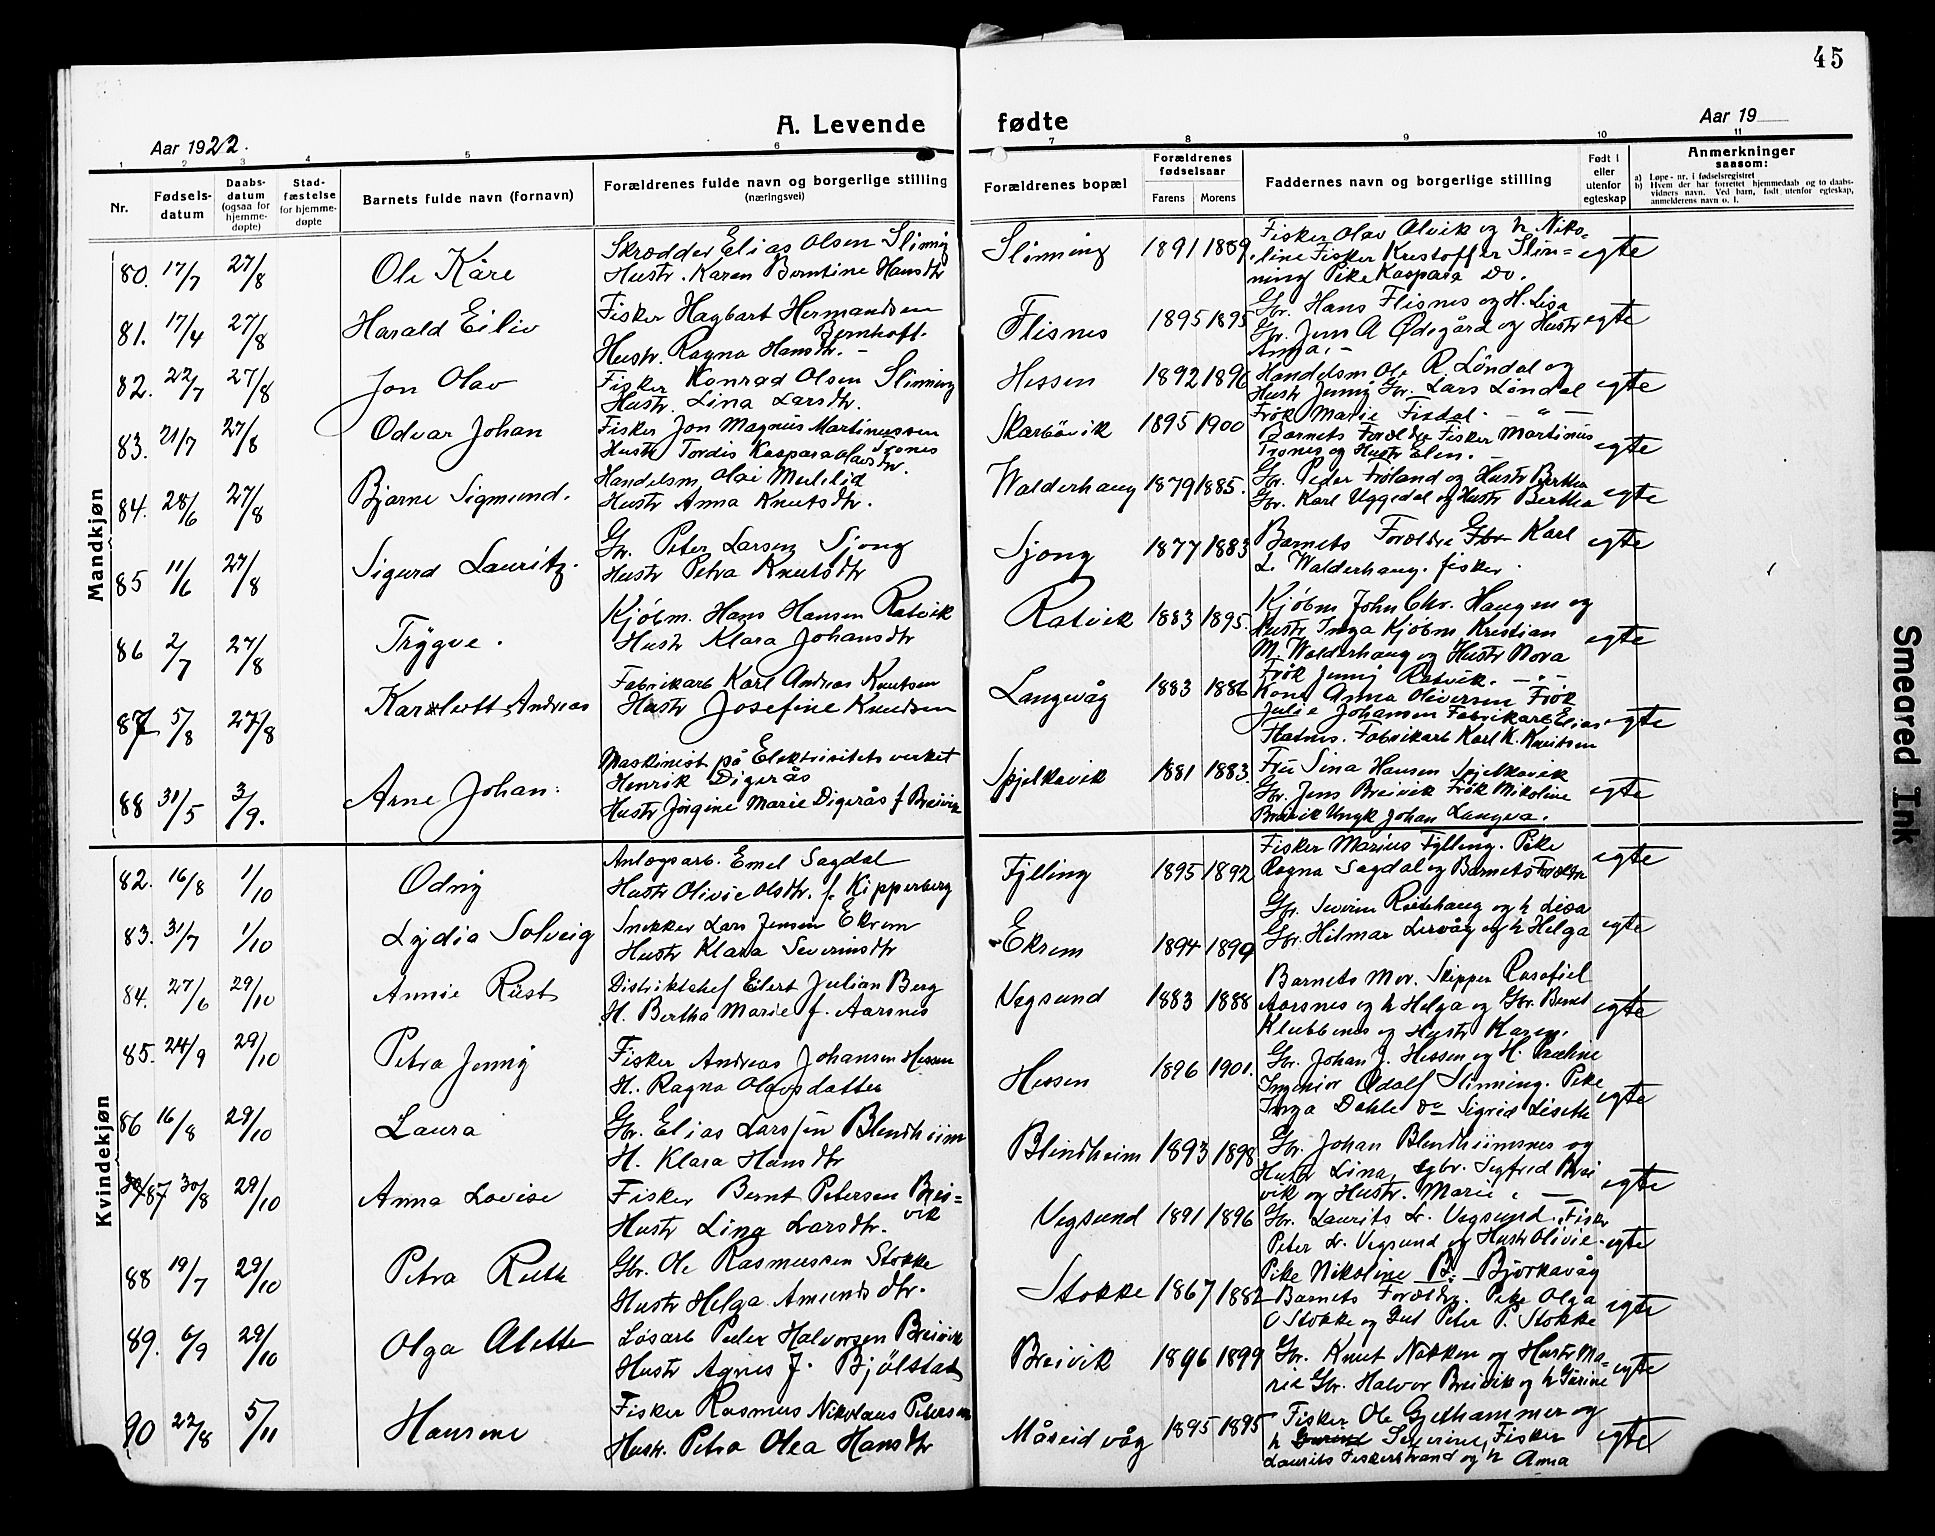 45
A. Levende fødte
Aar 1922.
Aar 19
1 2 3 4 5 6 7 8 9 10 11
Nr.
Fødsels-
datum
Daabs-
datum
(ogsaa for
hjemme-
døpte)
Stad-
fæstelse
for hjemme-
døpte
Barnets fulde navn (fornavn)
Forældrenes fulde navn og borgerlige stilling
(næringsvei)
Forældrenes bopæl
Forældrenes
fødselsaar
Farens Morens
Faddernes navn og borgerlige stilling
Født i
eller
utenfor
egteskap
Anmerkninger
saasom:
a) Løpe-nr. i fødselsregistret
b) Hvem der har forrettet hjemmedaab og to daabs-
vidners navn. Ved barn, født utenfor egteskap,
anmelderens navn o. l.
Mandkjøn
80. 17/7 27/8 Ole Kåre
Skrædder Elias Olsen Slinning
Hustr. Karen Berntine Hansdtr
Slinning 1891 1889
Fisker Olav Alvik og h. Niko-
line Fisker Kristoffer Slin-
ning Pike Kaspara do.
egte
81. 17/4 27/8 Harald Eiliv
Fisker Hagbart Hermandsen
Bernhoft.
Hustr. Ragna Hansdtr. -
Flisnes 1895 1895
Gbr. Hans Flisnes og H. Lisa
Gbr. Jens A Ødegård og Hustr
Anna. -
egte
82. 22/7 27/8 Jon Olav
Fisker Konrad Olsen Slinning
Hustr. Lina Larsdtr.
Hessen 1892 1896
Handelsm Ole R Löndal og
Hustr Jenny Gbr. Lars Löndal
Frök Marie Fisdal. - " -
egte
83. 21/7 27/8 Odvar Johan
Fisker Jon Magnus Martinussen
Trones
Hustr Tordis Kaspara Olavsdtr.
Skarbövik 1895 1900
Barnets Forældre Fisker Martinus
Trones og Hustr Elen. -
egte
84. 28/6 27/8 Bjarne Sigmund.
Handelsm Olai Mulelid
Hustr Anna Knutsdtr.
Walderhaug 1879 1885.
Gbr. Peder Fröland og Hustr Bertha
Gbr. Karl Uggedal og Hustr Bertha
egte
85 11/6 27/8 Sigurd Lauritz.
Gbr. Peter Larsen Sjong
Hustr Petra Knutsdtr
Sjong 1877 1883
Barnets Forældre Gbr Karl
L. Walderhaug. fisker.
egte
86 2/7 27/8 Trygve.
Kjöbm. Hans Hansen Ratvik
Hustr Klara Johansdtr
Ratvik 1883 1895.
Kjöbm John Chr. Haugen og
Hustr Inga Kjöbm Kristian
M. Walderhaug og Hustr Nora
Frök Jenny Ratvik. - " -
egte
87 5/8 27/8 Karlott Andreas
Fabrikarb Karl Andreas Knutsen
Hustr Josefine Knudsen
Langevåg 1883 1886
Kone Anna Oliversen Frök
Julie Johansen Fabrikarb Elias
Flatnes. Fabrikarb Karl K. Knutsen
egte
88 31/5 3/9. Arne Johan.
Maskinist på Elektrisitetsverket
Henrik Digerås
Hustr Jörgine Marie Digerås f Breivik
Spjelkavik 1881 1883.
Fru Sina Hansen Spjelkavik
Gbr. Jens Breivik Frök Nikoline
Breivik Ungk Johan Langva.
egte
Kvindekjøn
82. 16/8 1/10 Odny
Anlægsarb. Emel Sagdal
Hustr Olivie Olsdtr. f. Kipperberg
Fylling 1895 1892
Fisker Marius Fylling. Pike
Ragna Sagdal og Barnets Forældre
egte
83. 31/7 1/10 Lydia Solveig
Snekker Lars Jensen Ekrem
Hustr Klara Severinsdtr
Ekrem 1894 1890
Gbr. Severin Ristehaug og h Lisa
Gbr. Hilmar Lervåg og h Helga
egte
84. 27/6 29/10 Annie Rüst
Distriktschef Eilert Julian Berg
H. Bertha Marie f. Aarsnes
Vegsund 1883 1888
Barnets Mor. Skipper Rasofiel
Aarsnes og h Helga og Gbr. Bernt
Klubbenes og Hustr Karen.
egte
85. 24/9 29/10 Petra Jenny
Fisker Andreas Johansen Hessen
H. Ragna Olavsdatter
Hessen 1896 1901.
Gbr. Johan J. Hessen og H. Pauline
Ingeniør Odolf Slinning. Pike
Inga Dahle do Sigrid Liseth
egte
86 16/8 29/10 Laura
Gbr. Elias Larssen Blendheim
H. Klara Hansdtr
Blindheim 1893 1898
Gbr. Johan Blendheimsnes og
Hustr Lina, gbr. Sigfred Brei
vik og Hustr. Marie. -
egte
87 30/8 29/10 Anna Lovise
Fisker Bernt Petersen Brei-
vik
Hustr Lina Larsdtr.
Vegsund 1891 1896
Gbr. Laurits L. Vegsund. Fisker
Peter L. Vegsund og Hustr Olivie.
egte
88 19/7 29/10 Petra Ruth
Gbr. Ole Rasmussen Stokke
Hustr Helga Amundsdtr.
Stokke 1867 1882
Pike Nikoline B. Bjorkavåg
Barnets Forældre. Pike Olga
O Stokke og Gut Peter P. Stokke
egte
89. 6/9 29/10 Olga Alette
Løsarb Peder Halvorsen Breivik
Hustr Agnes J. Bjölstad
Breivik 1896 1899
Gbr. Knut Nakken og Hustr Ma-
rie Gbr. Halvor Breivik og h Gurine
egte
90 22/8 5/11 Hansine
Fisker Rasmus Nikolaus Petersen
Hustr. Petra Olea Hansdtr
Måseidvåg 1895 1895
Fisker Ole Gjethammer og
h Severine, Fisker
Laurits Fiskerstrand og h Anna
egte
Smeared Ink